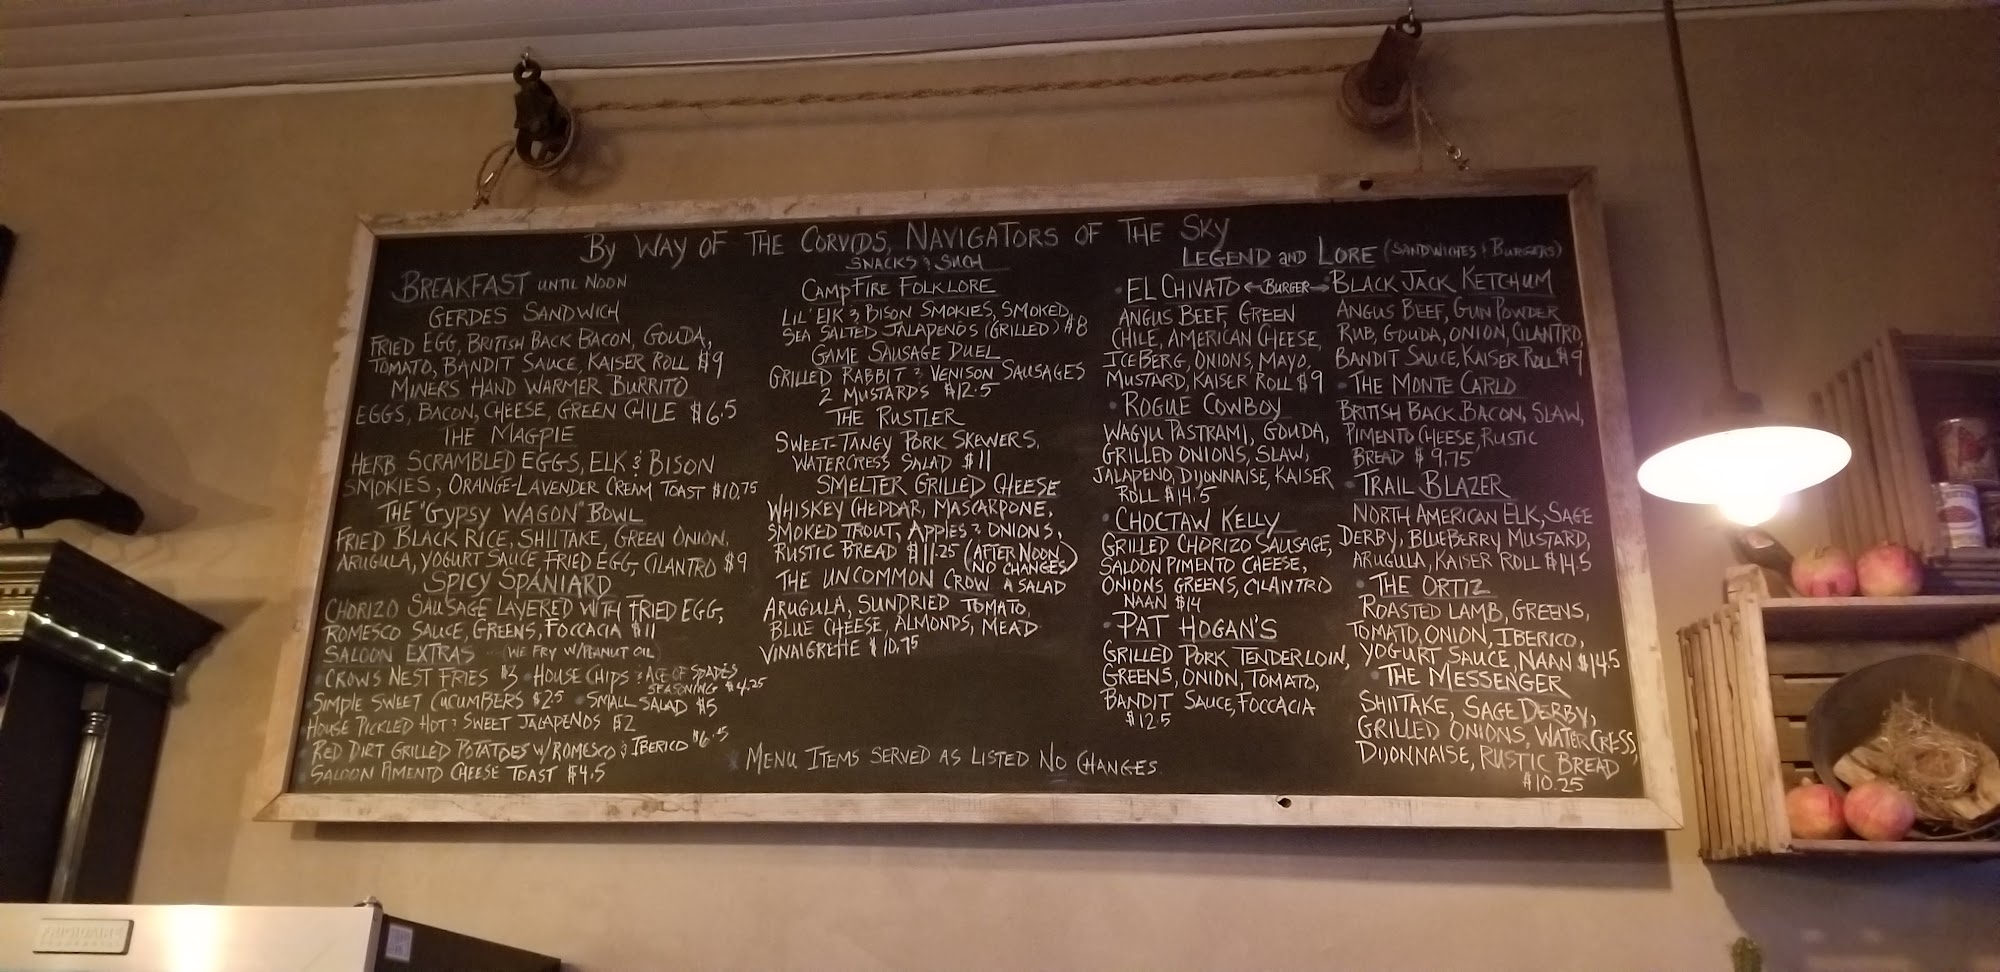 By Way of the Corvids, Navigators of the Sky
Breakfast until noon
Gerdes Sandwich
Fried Egg, British Back Bacon, Gouda,
Tomato, Bandit Sauce, Kaiser Roll $9
Miners Hand Warmer Burrito
Eggs, Bacon, Cheese, Green Chile $6.5
The Magpie
Herb Scrambled Eggs, Elk & Bison
Smokies, Orange-Lavender Cream Toast $10.75
The "Gypsy Wagon" Bowl
Fried Black Rice, Shiitake, Green Onion,
Arugula, Yogurt Sauce, Fried Egg, Cilantro $9
Spicy Spaniard
Chorizo Sausage Layered with Fried Egg,
Romesco Sauce, Greens, Foccacia $11
Saloon Extras (We fry w/peanut oil)
Crows Nest Fries $3 • House Chips & Ace of Spades
Seasoning $4.25
Simple Sweet Cucumbers $2.5 • Small Salad $5
House Pickled Hot & Sweet Jalapenos $2
Red Dirt Grilled Potatoes w/Romesco & Iberico $6.5
Saloon Pimento Cheese Toast $4.5
Snacks & Such
Campfire Folklore
Lil' Elk & Bison Smokies, Smoked,
Sea Salted Jalapenos (Grilled) $8
Game Sausage Duel
Grilled Rabbit & Venison Sausages
2 Mustards $12.5
The Rustler
Sweet-Tangy Pork Skewers,
Watercress Salad $11
Smelter Grilled Cheese
Whiskey Cheddar, Mascarpone,
Smoked Trout, Apples & Onions,
Rustic Bread $11.25 (After Noon
No Changes)
The Uncommon Crow a Salad
Arugula, Sundried Tomato,
Blue Cheese, Almonds, Mead
Vinaigrette $10.75
Menu Items Served as Listed. No Changes
Legend and Lore (Sandwiches & Burgers)
• El Chivato ← Burger →
Angus Beef, Green
Chile, American Cheese,
Iceberg, Onions, Mayo,
Mustard, Kaiser Roll $9
• Rogue Cowboy
Wagyu Pastrami, Gouda,
Grilled Onions, Slaw,
Jalapeno, Dijonnaise, Kaiser
Roll $14.5
• Choctaw Kelly
Grilled Chorizo Sausage,
Saloon Pimento Cheese,
Onions, Greens, Cilantro
Naan $14
• Pat Hogan's
Grilled Pork Tenderloin,
Greens, Onion, Tomato,
Bandit Sauce, Foccacia
$12.5
Black Jack Ketchum
Angus Beef, Gun Powder
Rub, Gouda, Onion, Cilantro,
Bandit Sauce, Kaiser Roll $9
• The Monte Carlo
British Back Bacon, Slaw,
Pimento Cheese, Rustic
Bread $9.75
• Trail Blazer
North American Elk, Sage
Derby, Blueberry Mustard,
Arugula, Kaiser Roll $14.5
• The Ortiz
Roasted Lamb, Greens,
Tomato, Onion, Iberico,
Yogurt Sauce, Naan $14.5
• The Messenger
Shiitake, Sage Derby,
Grilled Onions, Watercress,
Dijonnaise, Rustic Bread
$10.25